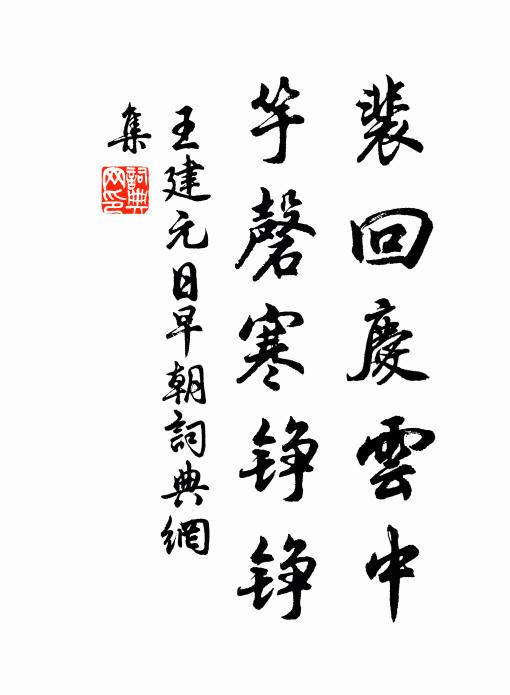 裴回慶雲中
竽磬寒铮铮
王建元日早朝詞典網
集
詞典网印